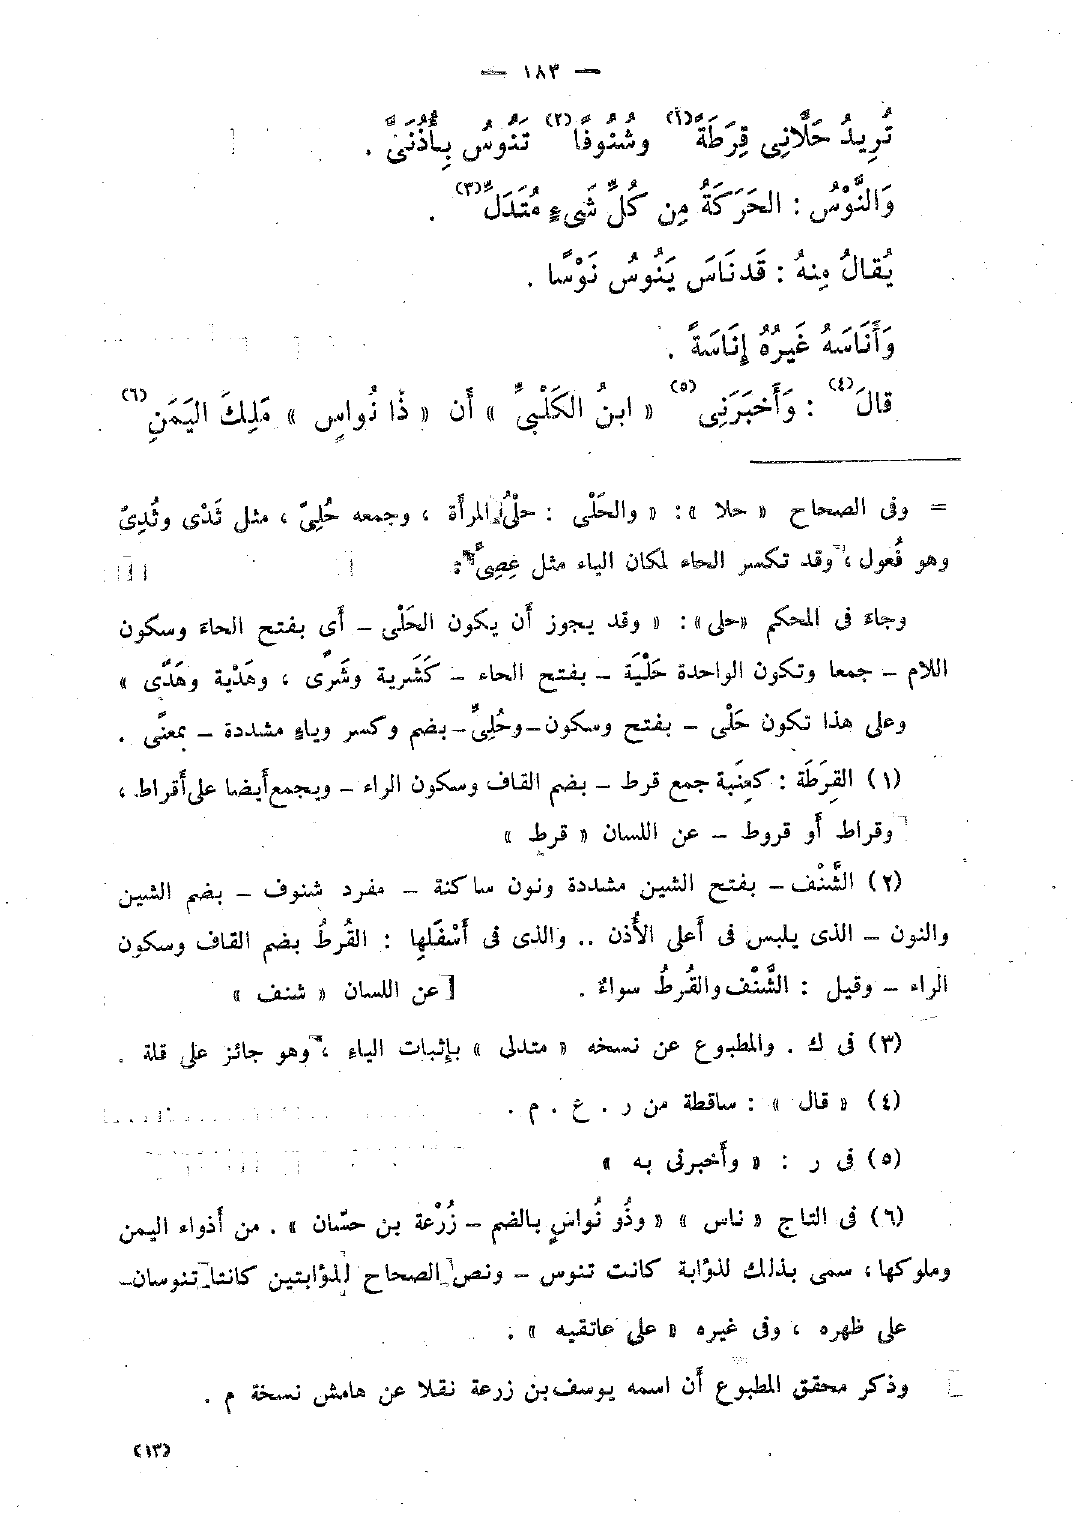 — ١٨٣ —
تُرِيدُ حَلَّانِى قِرَطَةً(١) وشُنُوفًا(٢) تَنُوسُ بِأُذُنَىَّ .
وَالنَّوْسُ : الحَرَكَةُ مِن كُلِّ شَىءٍ مُتَدَلٍّ(٣) .
يُقالُ مِنهُ : قَد نَاسَ يَنُوسُ نَوْسًا .
وَأَنَاسَهُ غَيرُهُ إِنَاسَةً .
قالَ(٤) : وَأَخبَرَنِى(٥) « ابنُ الكَلْبِىِّ » أَن « ذَا نُواسٍ » مَلِكَ اليَمَنِ(٦)
= وفى الصحاح « حلا » : « والحَلْى : حلْىُ المرأَة ، وجمعه حُلِىّ ، مثل ثَدْى وثُدِىّ
وهو فُعول ، وقد تكسر الحاء لمكان الياء مثل عِصِىّ » :
وجاءَ فى المحكم «حلى» : « وقد يجوز أَن يكون الحَلْى – أَى بفتح الحاءَ وسكون
اللام – جمعا وتكون الواحدة حَلْيَة – بفتح الحاء – كَشَرية وشَرْى ، وهَدْية وهَدْى »
وعلى هذا تكون حَلْى – بفتح وسكون – وحُلِىّ – بضم وكسر وياءٍ مشددة – بمعنًى .
(١) القِرَطَة : كعِنَبة جمع قرط – بضم القاف وسكون الراء – ويجمع أَيضا على أَقراط ،
وقراط أَو قروط – عن اللسان « قرط »
(٢) الشَّنْف – بفتح الشين مشددة ونون ساكنة – مفرد شنوف – بضم الشين
والنون – الذى يلبس فى أَعلى الأُذن .. والذى فى أَسْفَلِها : القُرطُ بضم القاف وسكون
الراء – وقيل : الشَّنْف والقُرطُ سواءٌ . عن اللسان « شنف »
(٣) فى ك . والمطبوع عن نسخه « متدلى » بإِثبات الياءِ ، وهو جائز على قلة .
(٤) « قال » : ساقطة من ر . ع . م .
(٥) فى ر : « وأَخبرنى به »
(٦) فى التاج « ناس » « وذُو نُواسٍ بالضم – زُرْعة بن حسّان » . من أَذواء اليمن
وملوكها ، سمى بذلك لذؤابة كانت تنوس – ونص الصحاح لذؤابتين كانتا تنوسان –
على ظهره ، وفى غيره « على عاتقيه » .
وذكر محقق المطبوع أَن اسمه يوسف بن زرعة نقلا عن هامش نسخة م .
(١٣)